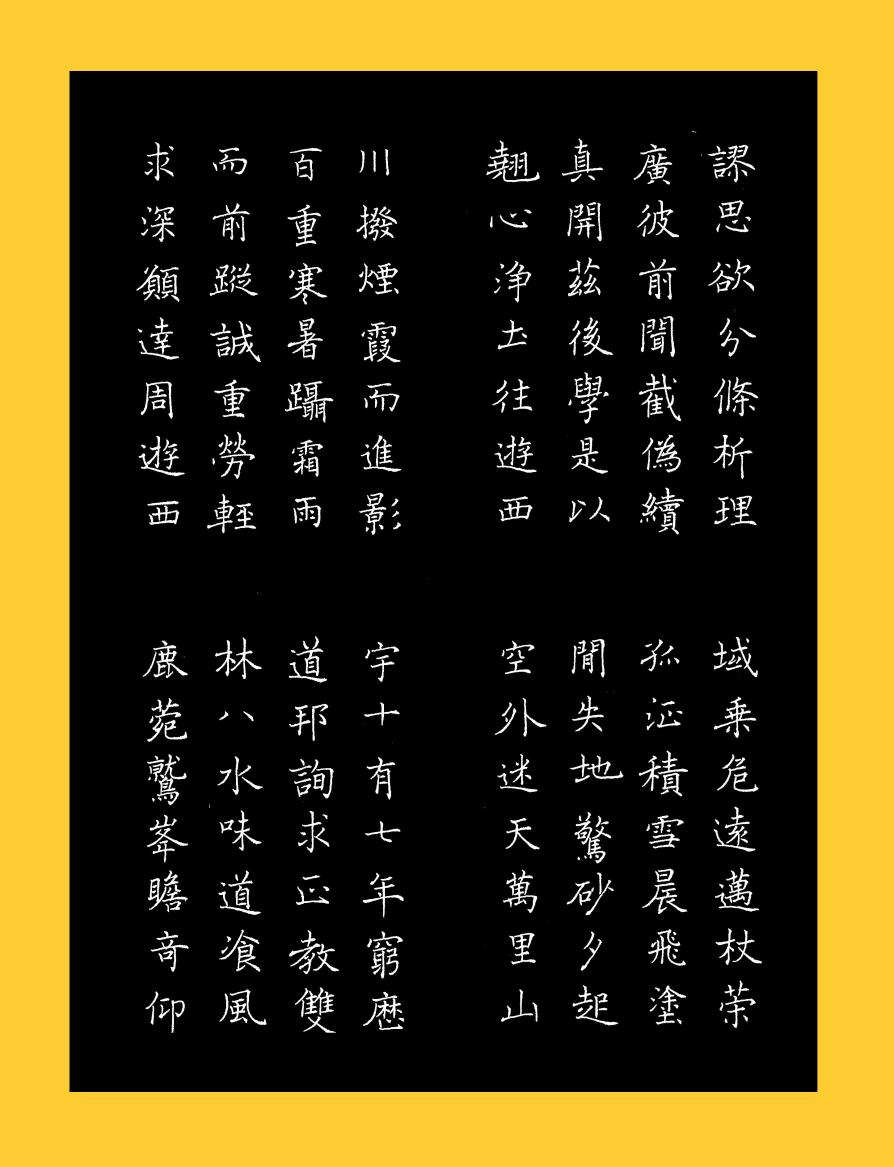 謬思欲分條析理
廣彼前聞截偽續
真開茲後學是以
翹心浄土往遊西
域乗危遠邁杖策
孤征積雪晨飛塗
閒失地驚砂夕起
空外迷天萬里山
川撥煙霞而進影
百重寒暑躡霜雨
而前蹤誠重勞輕
求深願達周遊西
宇十有七年窮歷
道邦詢求正教雙
林八水味道飡風
鹿菀鷲峯瞻奇仰